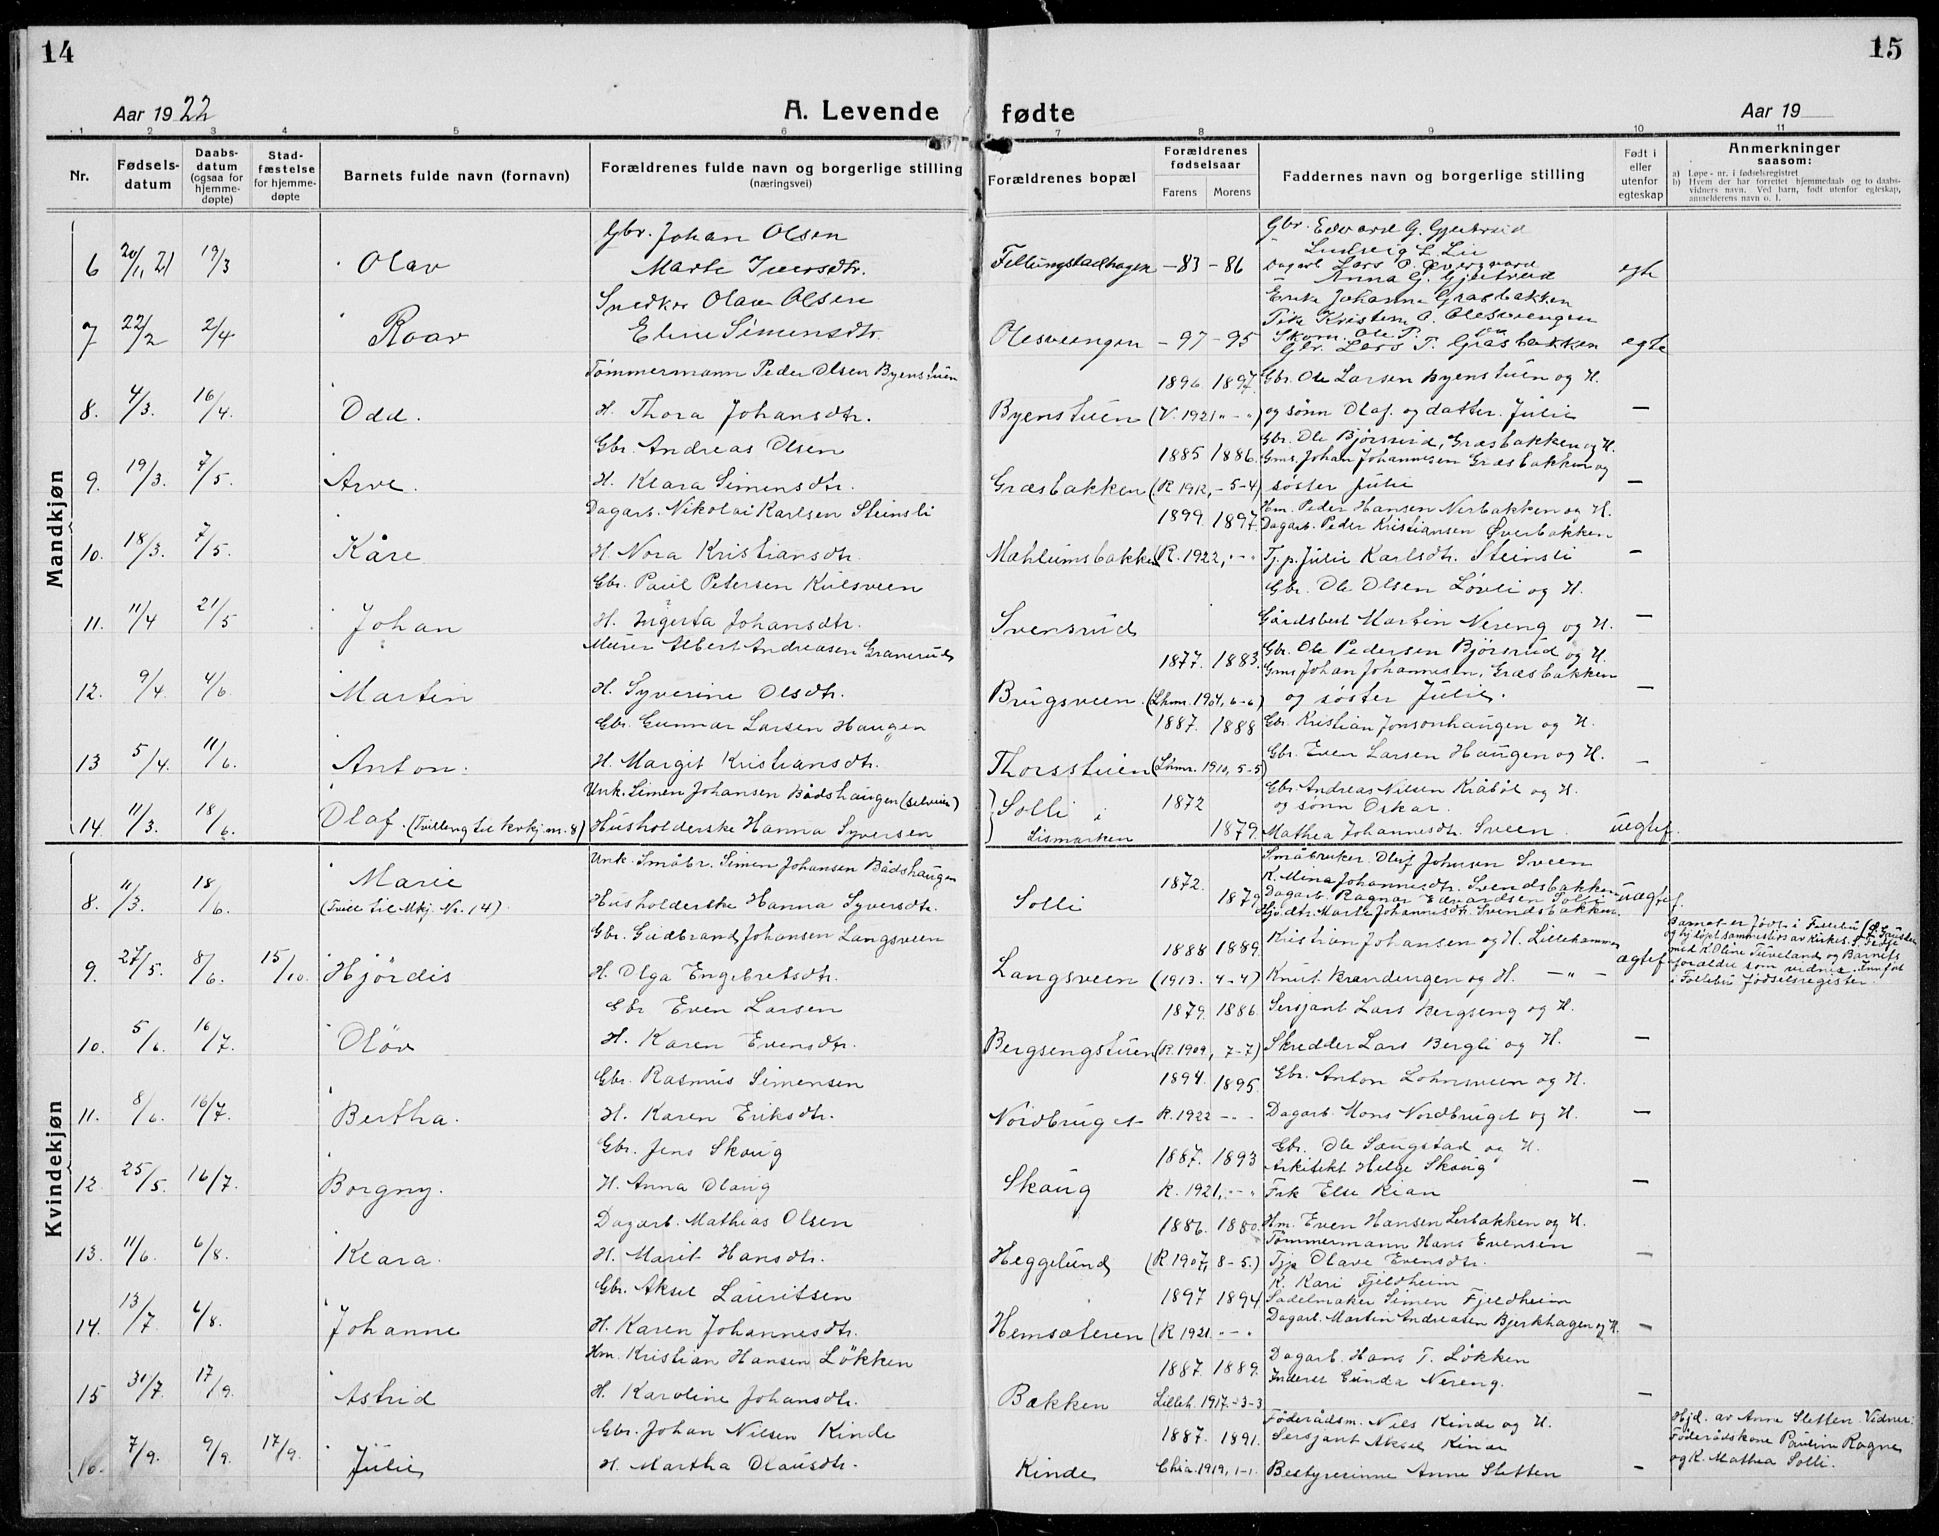 14
15
Aar 1922
A. Levende fødte
Aar 19
1 2 3 4 5 6 7 8 9 10 11
Nr.
Fødsels-
datum
Daabs-
datum
(ogsaa for
hjemme-
døpte)
Stad-
fæstelse
for hjemme-
døpte
Barnets fulde navn (fornavn)
Forældrenes fulde navn og borgerlige stilling
(næringsvei)
Forældrenes bopæl
Forældrenes
fødselsaar
Farens Morens
Faddernes navn og borgerlige stilling
Født i
eller
utenfor
egteskap
Anmerkninger
saasom:
a) Løpe-nr. i fødselsregistret
b) Hvem der har forrettet hjemmedaab og to daabs-
vidners navn. Ved barn, født utenfor egteskap,
anmelderens navn o. l.
Mandkjøn
Gbr. Johan Olsen
Gbr. Edvard G. Gjertrud
Ludvig L. Lie
6 20/11 21 19/3 Olav Marte Iversdtr. -83 -86 Dagarb. Lars egte
Anna G. Gjertrud
Snedker Olav Olsen
Enke Johanne Græsbakken
7 22/2 2/4 Roar Eline Simensdtr. Olesveengen -97 -95
Gbr. Lars T. Græsbakken egte
Tømmermann Peder Olsen Byenstuen
1896 1897. Gbr. Ole Larsen Byenstuen og H.
8. 4/3. 16/4. Odd. H. Thora Johansdtr. Byenstuen (V. 1921 " - ") og sønn Olaf. og datter. Julie —
Gbr. Andreas Olsen
Gbr. Ole Bjørsrud, Græsbakken og H.
1885 1886. Gms. Johan Johannesen Græsbakken og
9. 19/3. 7/5. Arve. H. Klara Simensdtr. Græsbakken (R 1912, -5-4) søster Julie —
Dagarb. Nikolai Karlsen Steinsli
Hm. Peder Hansen Nerbakken og H.
1899 1897. Dagarb. Peder Kristiansen Øverbakken
10. 18/3. 7/5. Kåre H. Nora Kristiansdtr. Mæhlumsbakken (R. 1922, - " - Tj. p. Julie Karlsdtr. Steinsli —
Gbr. Paul Petersen Kulsveen
Gbr. Ole Olsen Løvli og H.
11. 11/4 21/5 Johan H. Ingerta Johansdtr. Svensrud Gårdsbest. Martin Nereng og H. —
Murer Albert Andreasen Granerud
Gbr. Ole Pedersen Bjørsrud og H.
1877. 1883. Gms. Johan Johannesen, Græsbakken
12. 9/4. 4/6 Martin H. Syverine Olsdtr. Brugsveen. (Lhmr. 1904, 6-6) og søster Julie. —
Gbr. Gunnar Larsen Haugen
1887. 1888 Gbr. Kristian Jonsonhaugen og H.
13 5/4. 11/6. Anton. H. Margit Kristiansdtr. Thorsstuen (Lhmr. 1910, 5-5) Gbr. Even Larsen Haugen og H. —
Unk. Simen Johansen Bådshaugen (selveier)
Gbr. Andreas Nilsen Kråbøl og H.
Solli i 1872 og sønn Oskar.
14. 11/3. 18/6. Olaf. (Tvilling til kvkj. nr. 8) Husholderske Hanna Syversen Lismarken 1879. Mathea Johannesdtr. Sveen. uegtef.
Kvindekjøn
Unk. Småbr. Simen Johansen Bådshaugen
Småbruker. Oluf Johnsen Sveen
Marie 1872. K. Mina Johannesdtr. Svendsbakken
8. 11/3. 18/6. (Tvill. til Mkj. Nr. 14) Husholderske Hanna Syversdtr. Solli 1879. Dagarb. Ragnar Edvardsen Solli uægtef.
Hjv.dtr. Marte Johannesdtr. Svendsbakken.
Gbr. Gudbrand Johansen Langsveen
1888 1889. Kristian Johansen og H. Lillehammer
9. 27/5. 8/6. 15/10. Hjördis H. Olga Engebretsdtr. Langsveen (1913. 4-4) Knut Brændengen og H. — " — ægtef.
Barnet er født i Follebu
og hj. døpt sammesteds av Kirkes.
med K. Oline Tuveland og Barnets
forældre som vidner. Innført
i Follebu fødselsregister.
Gbr Even Larsen
1879. 1886. Sersjant Lars Bergseng og H.
10. 5/6. 16/7. Oløv H. Karen Evensdtr. Bergsengstuen (R. 1909, 7-7) Skredder Lars Bergli og H. —
Gbr. Rasmus Simensen
1894. 1895. Gbr. Anton Lohnsveen og H.
11. 8/6. 16/7. Bertha. H. Karen Eriksdtr. Nordbruget R. 1922 - " - Dagarb. Mons Nordbruget og H. —
Gbr. Jens Skoug
Gbr. Ole Saugstad og H.
1887. 1893 Arkitekt Helge Skoug
12. 25/5. 16/7. Borgny. H. Anna Olaug Skoug R. 1921, - " - Frk Else Kian —
Dagarb. Mathias Olsen
1886. 1880. Hm. Even Hansen Lerbakken og H.
Tømmermann Hans Evensen
13. 11/6. 6/8. Klara. H. Marit Hansdtr. Heggelund (R 1907, 8-5.) Tjp Olave Evensdtr. —
Gbr. Aksel Lauritsen
K. Kari Fjeldheim
1897 1894 Sadelmaker Simen Fjeldheim
14. 13/7 6/8. Johanne H. Karen Johannesdtr. Hemsæteren (R 1921. - " - Dagarb. Martin Andreasen Bjerkhagen og H. —
Hm. Kristian Hansen Løkken
1887. 1889. Dagarb. Hans T. Løkken
15 31/7. 17/9. Astrid H. Karoline Johansdtr. Bækken Lilleh. 1917. -3-3 Inderst Gunda Nereng. —
Gbr. Johan Nilsen Kinde
Føderådsm. Nils Kinde og H.
1887. 1891. Sersjant Aksel Kinde
16. 7/9. 9/9. 17/9. Julie H. Martha Olausdtr. Kinde Chia. 1919, 1-1. Bestyrerinne Anne Sletten —
Hjd. av Anne Sletten. Vidner:
Føderådskone Pauline Rogne
og K. Mathea Solli.